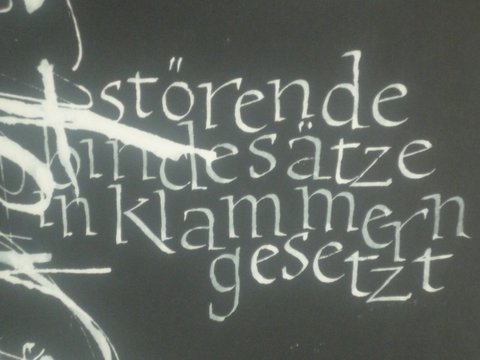 störende
bindesätze
in klammern
gesetzt